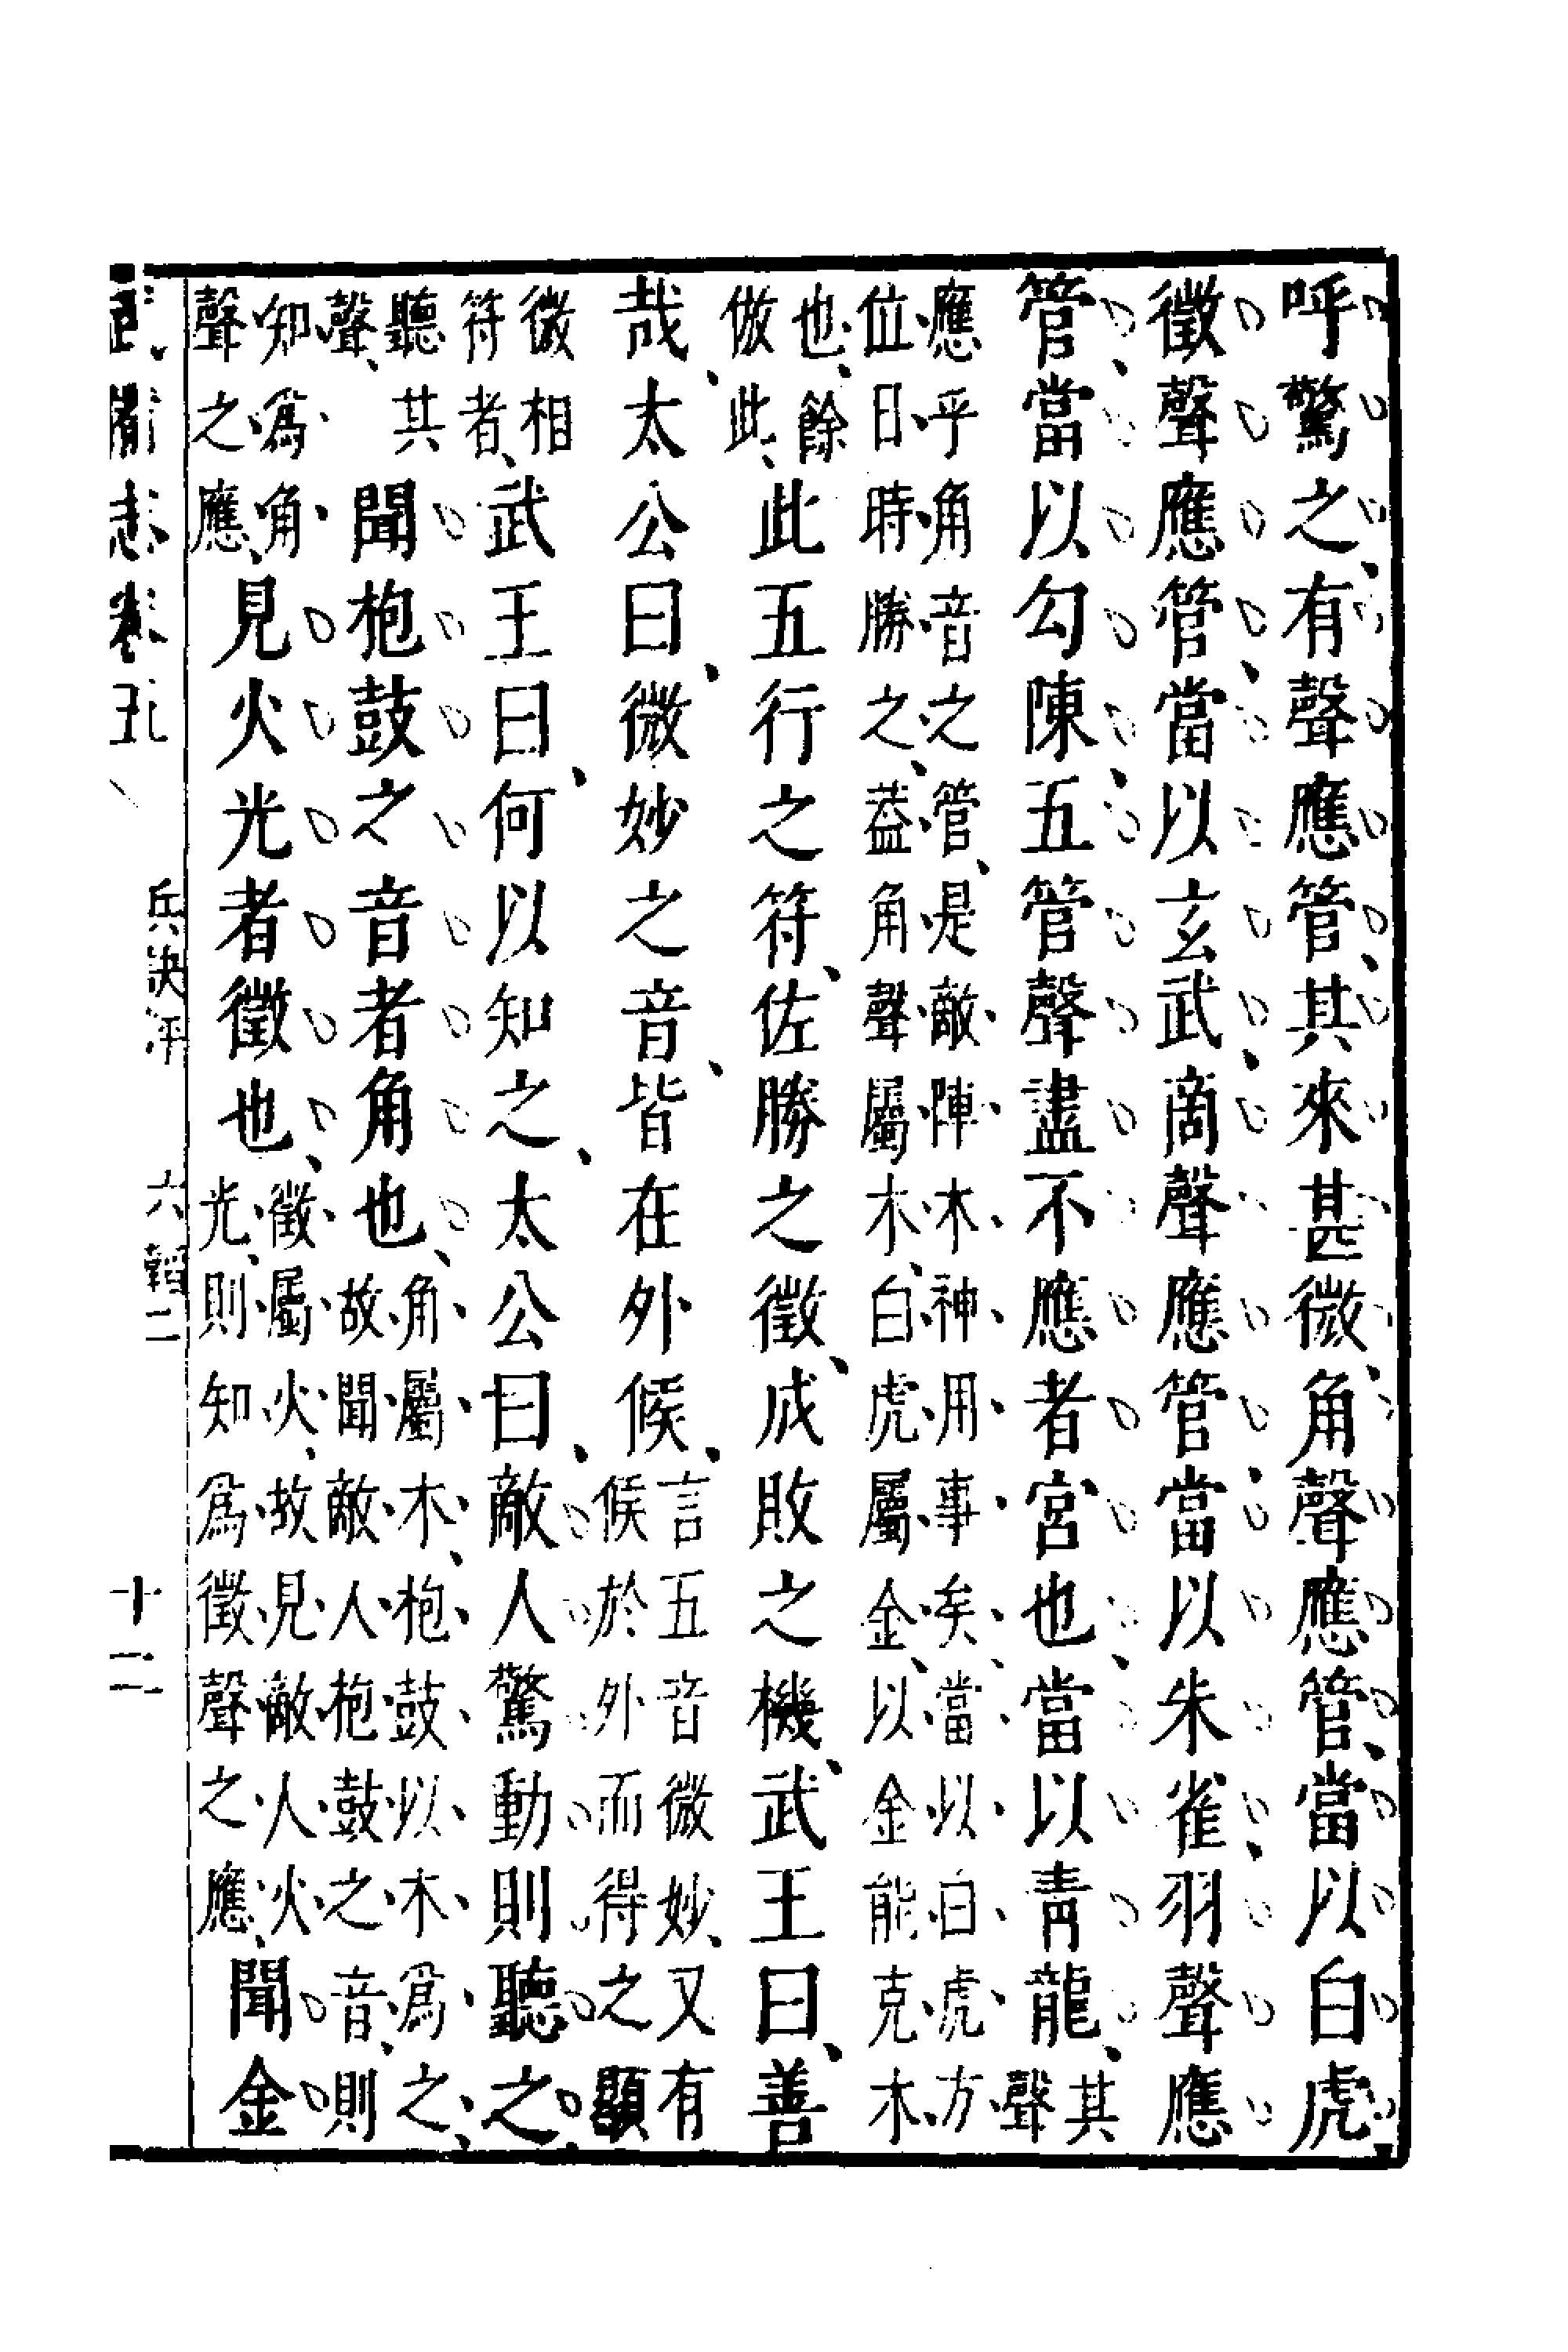 呼驚之有聲應管其來甚微角聲應管當以白虎
徵聲應管當以玄武商聲應管當以朱雀羽聲應
管當以勾陳五管聲盡不應者宮也當以青龍其聲
應乎角音之管是敵陣木神用事矣當以白虎方
位日時勝之葢角聲屬木白虎屬金以金能克木
也餘倣此此五行之符佐勝之徵成敗之機武王曰善
哉太公曰微妙之音皆在外候言五音微妙又有候於外而得之顯
微相符者武王曰何以知之太公曰敵人驚動則聽之
聽其聲聞枹鼓之音者角也角屬木枹鼓以木爲之故聞敵人枹鼓之音則
知爲角聲之應見火光者徵也徵屬火故見敵人火光則知爲徵聲之應聞金
武備志卷五 兵訣評 六韜二 十二